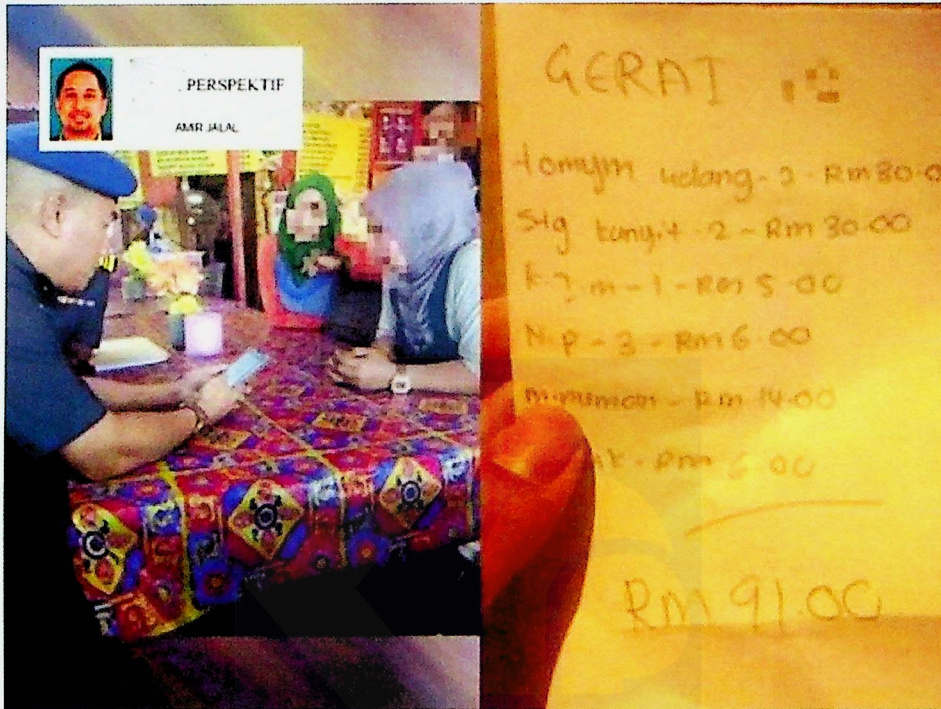 PERSPEKTIF
AMIR JALAL
GERAI
tomyam udang - 2 - Rm 30.0
Stg kunyit - 2 - Rm 30.00
K.J.m - 1 - Rm 5.00
N.p - 3 - Rm 6.00
minuman - Rm 14.00
k - Rm 6.00
RM 91.00